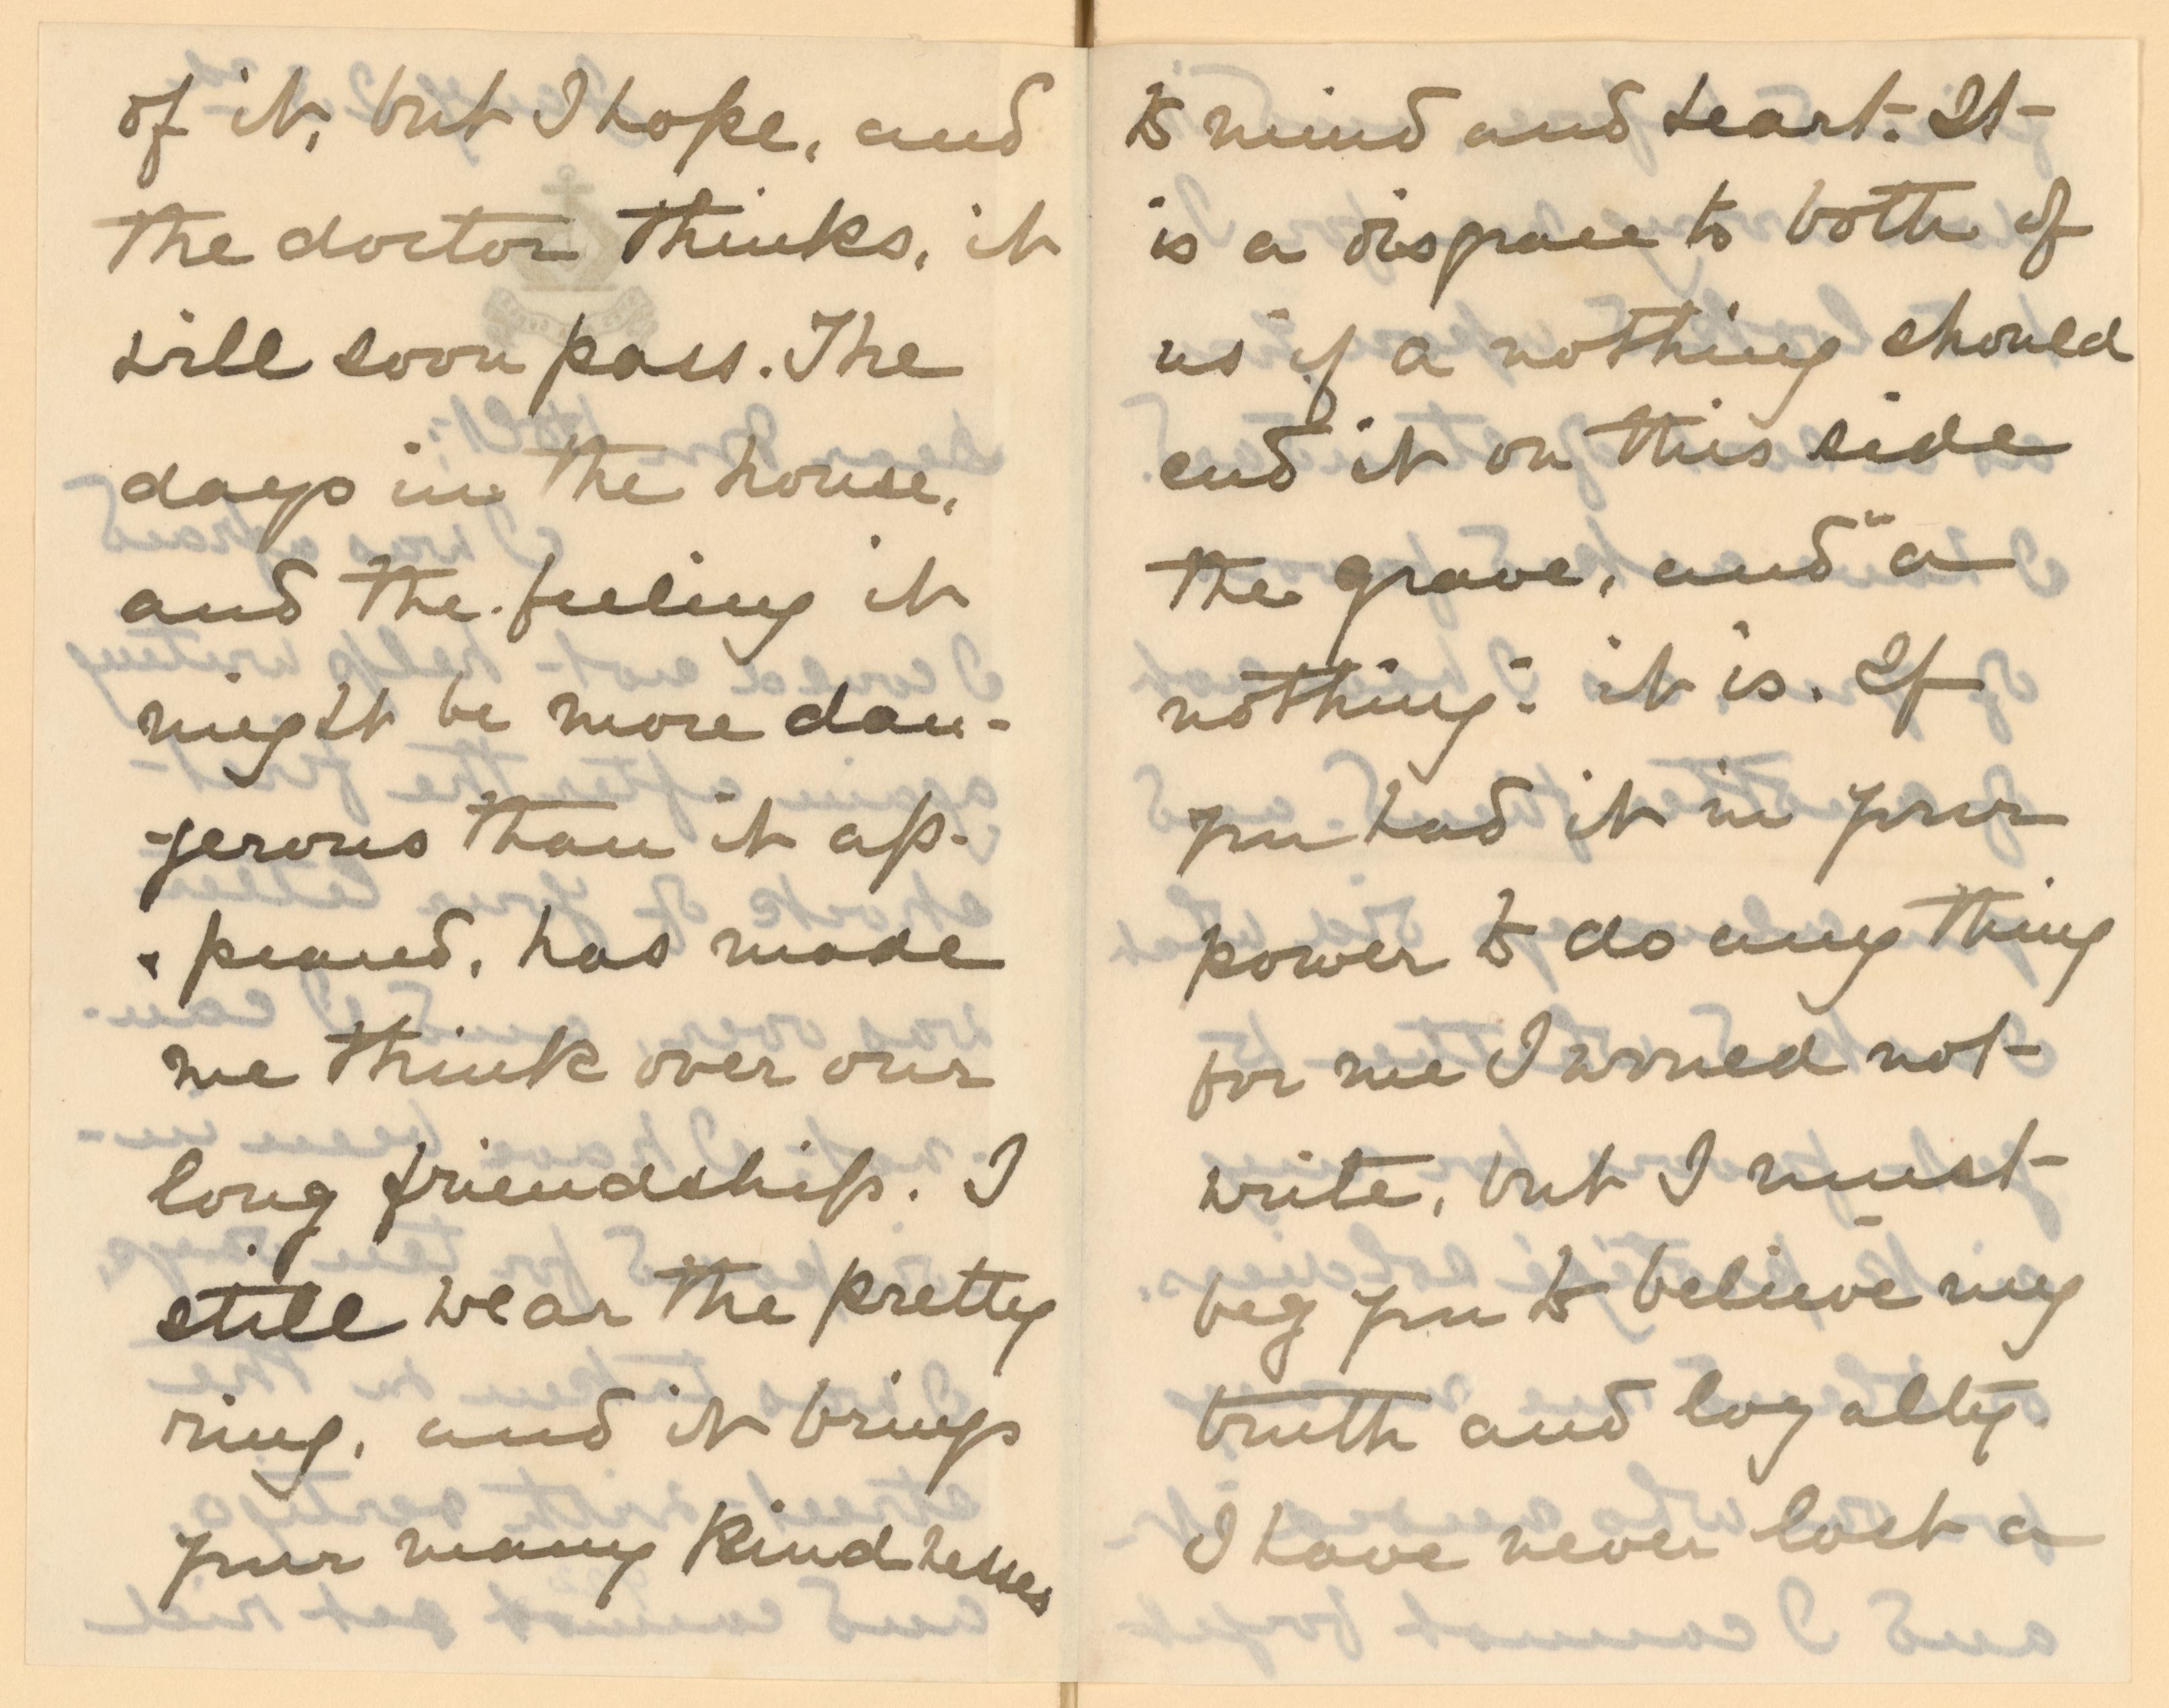 of it, but I hope, and
the doctor thinks, it
will soon pass. The
days in the house,
and the feeling it
might be more dan-
-gerous than it ap-
-peared, has made
me think over our
long friendship. I
still wear the pretty
ring, and it brings
your many kindnesses
to mind and heart. It
is a disgrace to both of
us if a nothing should
end it on this side
the grave, and "a
nothing" it is. If
you had it in your
power to do any thing
for me I would not
write, but I must
beg you to believe my
truth and loyalty.
I have never lost a